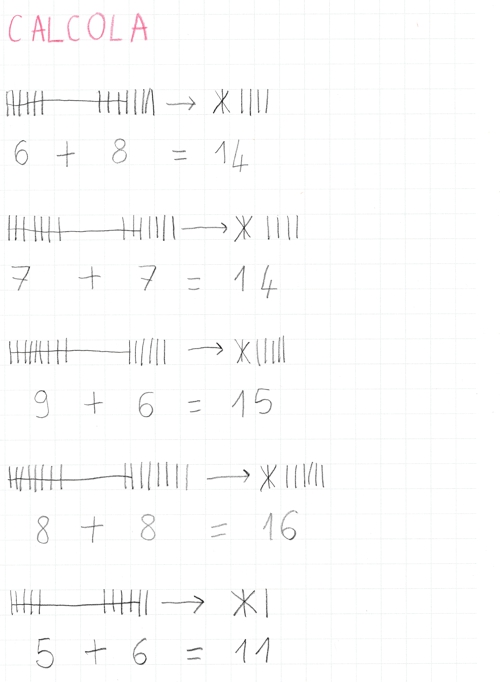 CALCOLA
6 + 8 = 14
7 + 7 = 14
9 + 6 = 15
8 + 8 = 16
5 + 6 = 11